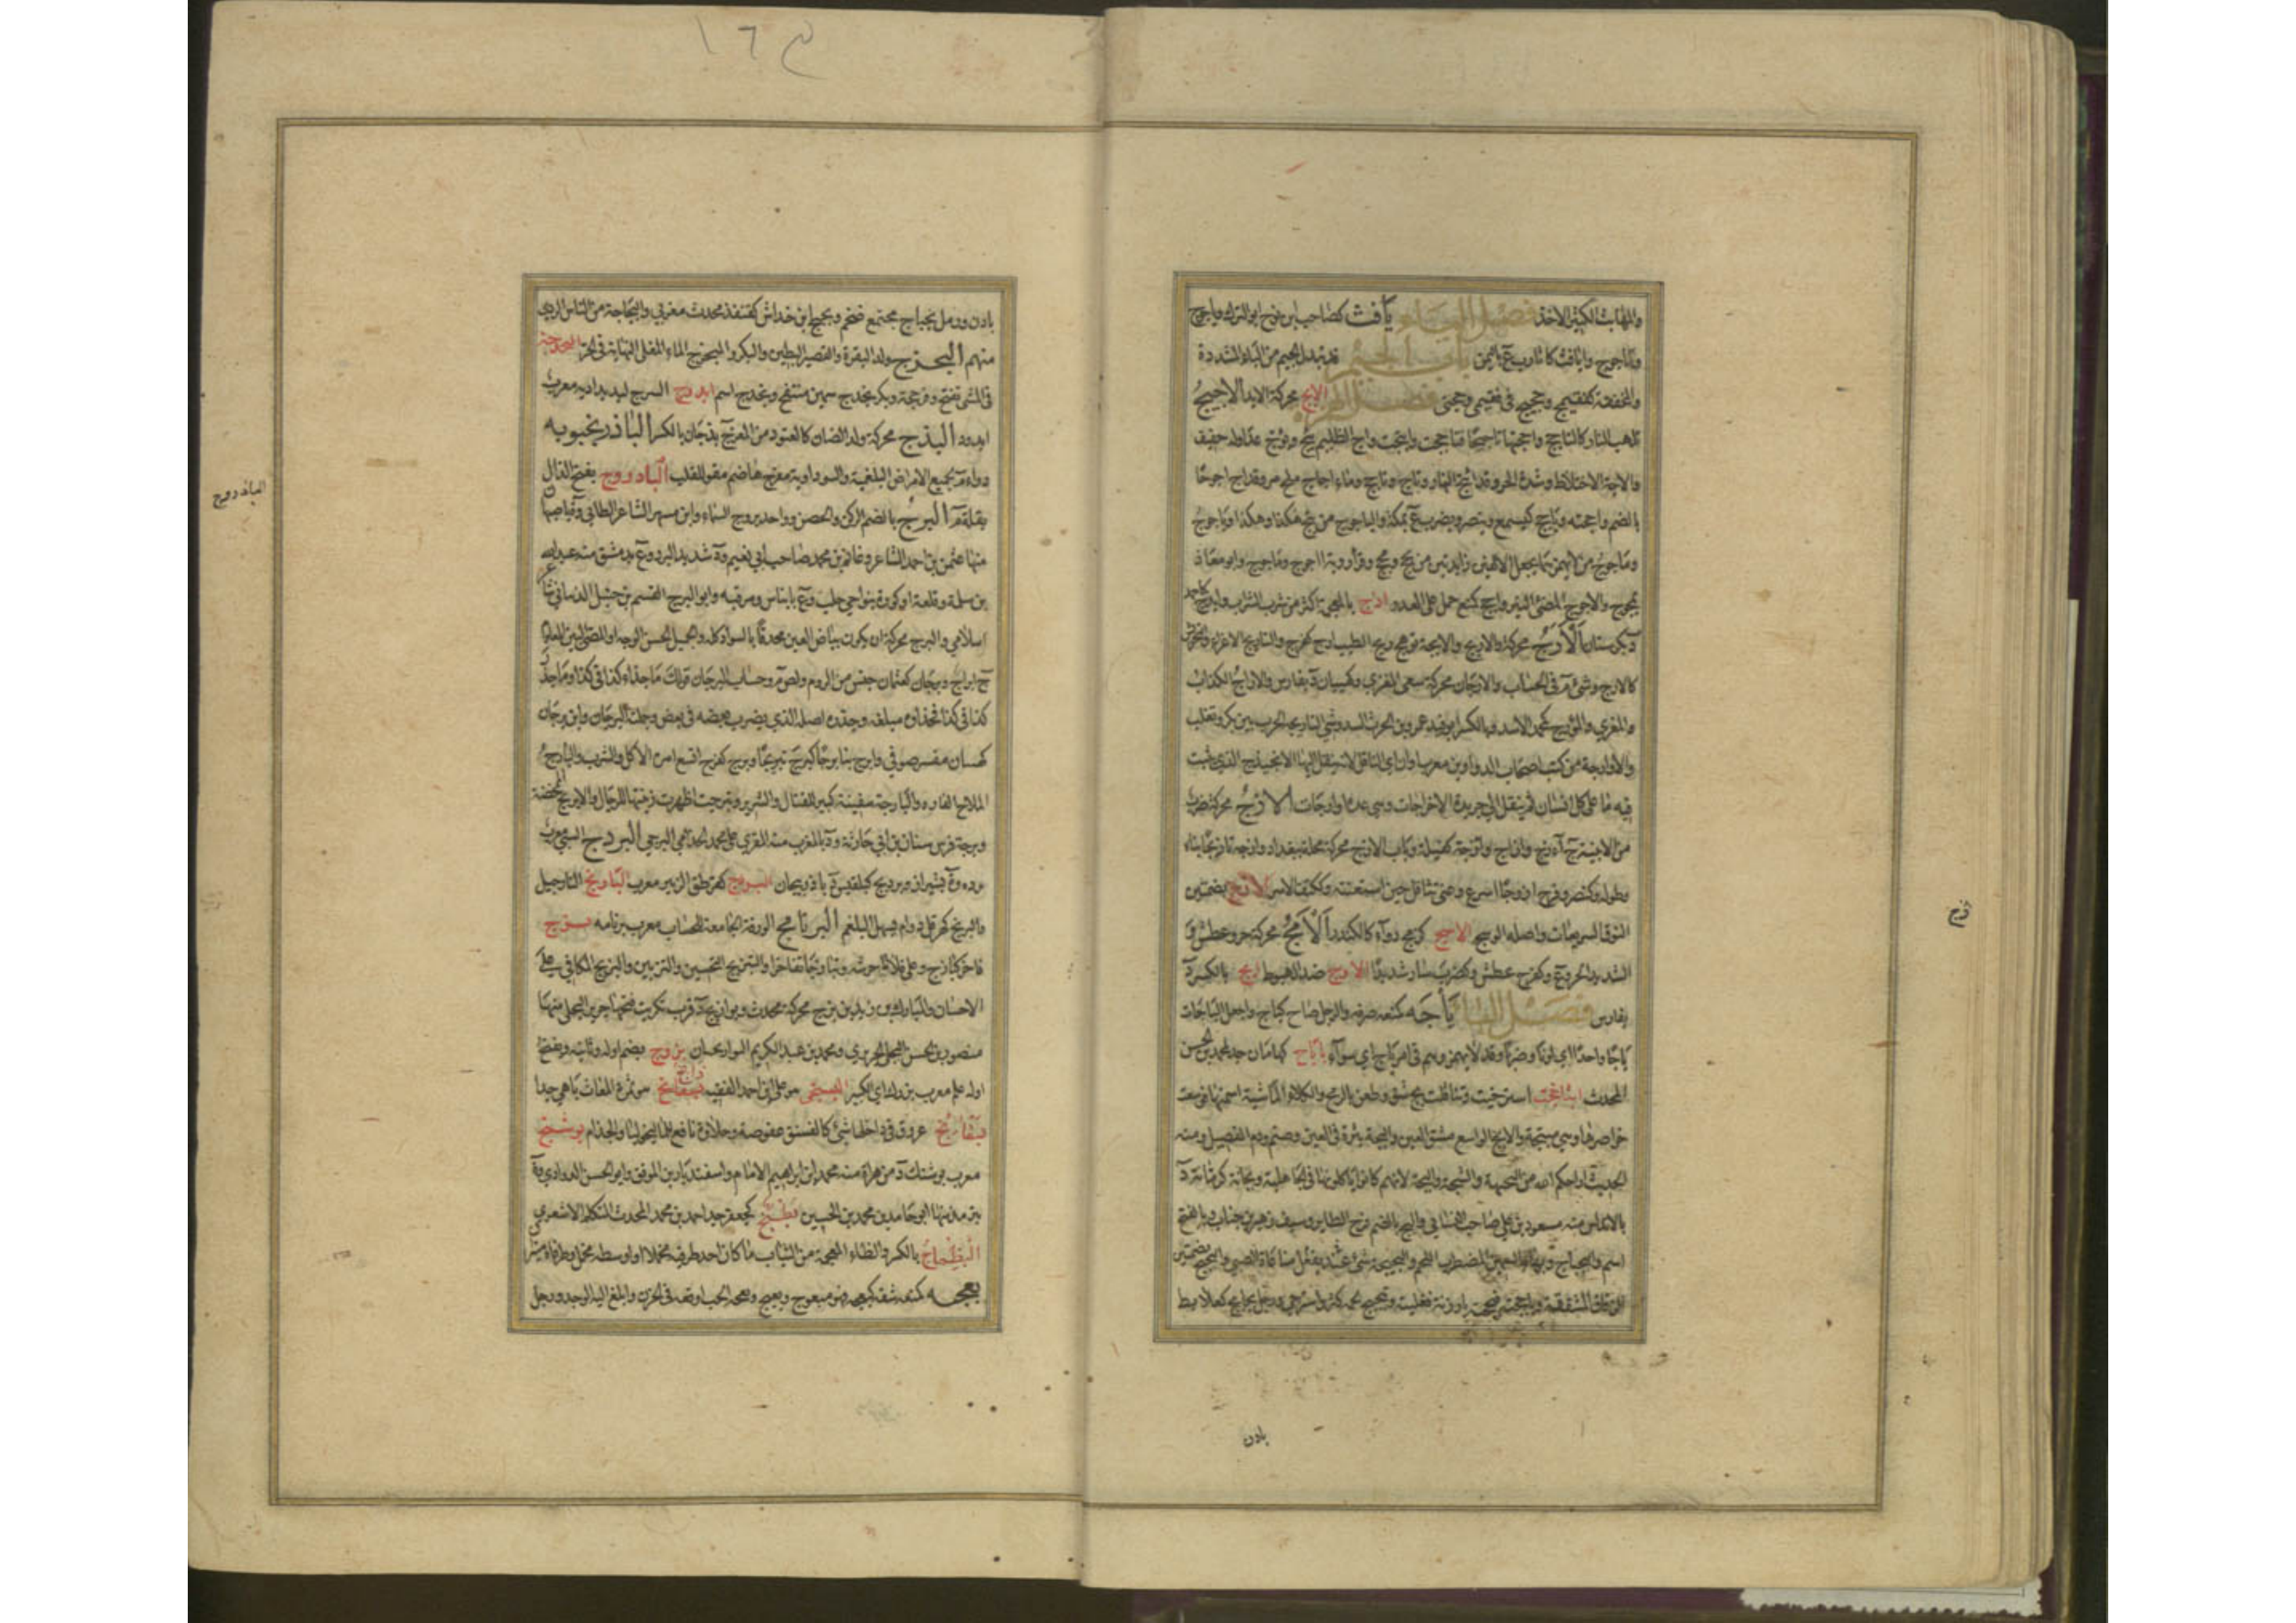 والمهاث الكثير الاخذ فصل الياء يافث كصاحب ابن نوح ابو الترك وياجوج
وماجوج وايافث كاثارب ع باليمن باب الجيم قد تبدل الجيم من الياء المشددة
والمخففة كفقيمج وحجتج في فقيمي وحجتي فصل الهمزة الابج محركة الابد الاجيج
تلهب النار كالتاجج واججتها تاجيجا فتاججت وائتجت واج الظليم يئج ويؤج عدا وله حفيف
والاجة الاختلاط وشدة الحر وقد ائتج النهار وتاج وتاجج وماء اجاج ملح مر وقد اج اجوجا
بالضم واججته وياجج كيسمع وينصر ويضرب ع بمكة والياجوج من يئج هكذا وهكذا وياجوج
وماجوج من لا يهمزهما يجعل الالفين زايدتين من يجج ومجج وقرا رؤبة اجوج وماجوج وابو معاذ
يمجوج والاجوج المضئ النير واجج كمنع حمل على العدو اذج بالمعجمة اكثر من شرب الشراب
الارج محركة والاريج والاريجة توهج ريح الطيب ارج كفرح والتاريج الاغراء والتحريش
كالارج وشئ م في الحساب والارجان محركة سعي المغري وكهيبان د بفارس والاراج الكذاب
والمغري والمؤرج كمحمد الاسد وبالكسر ابو فيد عمرو بن الحرث السدوسي لتاريجه الحرب بين بكر وتغلب
والاوارجة من كتب اصحاب الدواوين معرب اواره اي الناقل لانه ينقل اليها الانجيذج الذي يثبت
فيه ما على كل انسان ثم ينقل الي جريدة الاخراجات وهي عدة اوارجات الازج محركة ضرب
من الابنية ج آزج وازاج وازجة كفيلة وباب الازج محركة محلة ببغداد وازجه تازيجا بناه
وطوله وكنصر وفرح ازوجا اسرع وعني تثاقل حين استعنته وككتف الاشر الاسج بضمتين
النوق السريعات واصله الوسج الاشج كزمج دواء كالكندر الامج محركة حر وعطش و ع
الشديد الحر و ع وكفرح عطش وكضرب سار شديدا الاوج ضد الهبوط ايج بالكسر د
بفارس فصل الباء باجه كمنعه صرفه والرجل صاح كباج واجعل الباجات
باجا واحدا اي لونا وضربا وقد لا يهمز وهم في امر باج اي سواء باباج كهامان جد لمحمد بن الحسن
المحدث ابثاجت استرخيت وتثاقلت بج شق وطعن بالرمح والكلاء الماشية اسمنها فوسعت
خواصرها وهي مبتجة والابج الواسع مشق العين والبجة بثرة في العين وصنم ودم الفصيد ومنه
الحديث اراحكم الله من الجبهة والسجة والبجة لانهم كانوا ياكلونها في الجاهلية وبجانة كرمانة د
بالاندلس منه مسعود بن علي صاحب النسائي والبج بالضم فرخ الطاير وسيف زهير بن جناب وبالفتح
اسم والبجباج وبهاء السمين المضطرب اللحم والبجبجة شئ يفعل عند مناغاة الصبي والبجج بضمتين
الزقاق المشققة
بادن
بادن ورمل بجباج مجتمع ضخم وبجبج ابن خداش كقنفذ محدث مغربي والبجاجة من الناس الردي
منهم البحزج ولد البقرة والقصير البطين والبكر والمبحزج الماء المغلي النهاية في الحر البخدجة
في المشي تفتح وفرجحة وبكر بخدج سمين منتفخ وبخدج اسم ابدوج السرج لبد بداديه معرب
ابدود البذج محركة ولد الضان كالعتود من المعز ج بذجان بالكسر الباذرنجبويه
دواء م لجميع الامراض البلغمية والسوداوية مفرح هاضم مقو للقلب الباذروج بفتح الذال
بقلة م البرج بالضم الركن والحصن وواحد بروج السماء وابن مسهر الشاعر الطائي و ة باصبهان
منها عثمن بن احمد الشاعر وغانم بن محمد صاحب ابي نعيم و د شديد البرد و ع بدمشق منه عبدالله
بن سلمة وقلعة او كورة بنواحي حلب و ع بابناس ومرقبه وابو البرج القسم بن حنبل الذبياني شاعر
اسلامي والبرج محركة ان يكون بياض العين محدقا بالسواد كله والجميل الحسن الوجه او المضئ البين المعلوم
ج ابراج وبرجان كعثمان جنس من الروم ولص م وحساب البرجان قولك ما جذاء كذا في كذا وما جذر
كذا في كذا فجذاؤه مبلغه وجذره اصله الذي يضرب بعضه في بعض وجملته البرجان وابن برجان
كهيبان مفسر صوفي وابرج بنا برجا كبرج تبريجا وبرج كفرح اتسع امره في الاكل والشرب والبارج
الملاح الفاره والبارجة سفينة كبيرة للقتال والشرير وتبرجت اظهرت زينتها للرجال والابريج الممخضة
وبرجة فرس سنان بن ابي حارثة و د بالمغرب منه المقري علي بن محمد الجذامي البرجي البردج السبي معرب
برده و ة بشيراز وبرديج كبلقيس د باذربيجان البريج كقرطق الزئبر معرب البارنج النارجيل
والبرنج كهرقل دواء م يسهل البلغم البرنامج الورقة الجامعة للحساب معرب برنامه بزج
فاخر كبازج وعلي فلانا حرشه وتبازجا تفاخرا والتبزيج التحسين والتزيين والبزيج المكافي على
الاحسان والمبارك بن زيد بن بزج محركة محدث وبوازيج د قرب تكريت فتحها جرير البجلي منها
منصور بن الحسن البجلي الجريري ومحمد بن عبد الكريم البوازيجيان بزرج بضم اوله وثانيه وبفتح
اوله علم معرب بزرك اي الكبير البستجي هو علي بن احمد الفقيه بسفانج هو ثمرة المغاث باهي جدا
بسفايج عروق في داخلها شئ كالفستق عفوصة وحلاوة نافع للماليخوليا والجذام بوشنج
معرب بوشنك د من هراة منه محمد بن ابراهيم الامام واسفنديار بن الموفق وابو الحسن الداودي و ة
بترمذ منها ابو حامد بن محمد بن الحسين بطنج كجعفر جد احمد بن محمد المحدث المتكلم الاشعري
البظماج بالكسر والظاء المعجمة من الثياب ما كان احد طرفيه مخملا او وسطه مخمل وطرفاه منيران
بعجه كمنعه شقه كبعجه فهو مبعوج وبعيج وبعجه الحب اوقعه في الحزن وابلغ اليه الوجد ورجل
الباذروج